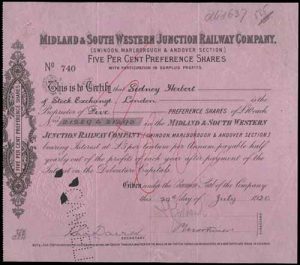 MIDLAND & SOUTH WESTERN JUNCTION RAILWAY COMPANY.
(SWINDON, MARLBOROUGH & ANDOVER SECTION)
FIVE PER CENT PREFERENCE SHARES
WITH PARTICIPATION IN SURPLUS PROFITS.
No 740
This is to Certify that Sidney Herbert
of Stock Exchange, London is the
Proprietor of Five PREFERENCE SHARES of £10 each
Nos in the MIDLAND & SOUTH WESTERN
JUNCTION RAILWAY COMPANY (SWINDON, MARLBOROUGH & ANDOVER SECTION)
bearing Interest at £5 per centum per Annum, payable half
yearly out of the profits of each year after payment of the
Interest on the Debenture Capital.
Given under the Common Seal of the Company
this 29th day of July 1920
FIVE PER CENT PREFERENCE SHARES
CANCELLED